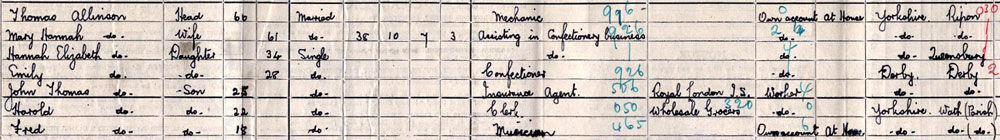 Thomas Allinson Head 66 Married Mechanic 996 0 Own account At House Yorkshire Ripon 030
Mary Hannah do. Wife 61 do. 38 10 7 3 Assisting in Confectionery business 926 2 6 do. do. do.
Hannah Elizabeth do. Daughter 34 Single do. 4 do. Queensbury
Emily do. do. 28 do. Confectioner 926 do. Derby. Derby 2
John Thomas do. Son 25 do. Insurance Agent. 506 Royal London I.S. Worker 4 do. do.
Harold do. do. 22 do. Clerk 050 Wholesale Grocers 320 do. 0 Yorkshire. Wath (Parish)
Fred do. do. 18 do. Musician 465 Own account At House 6 do. do. (do.)